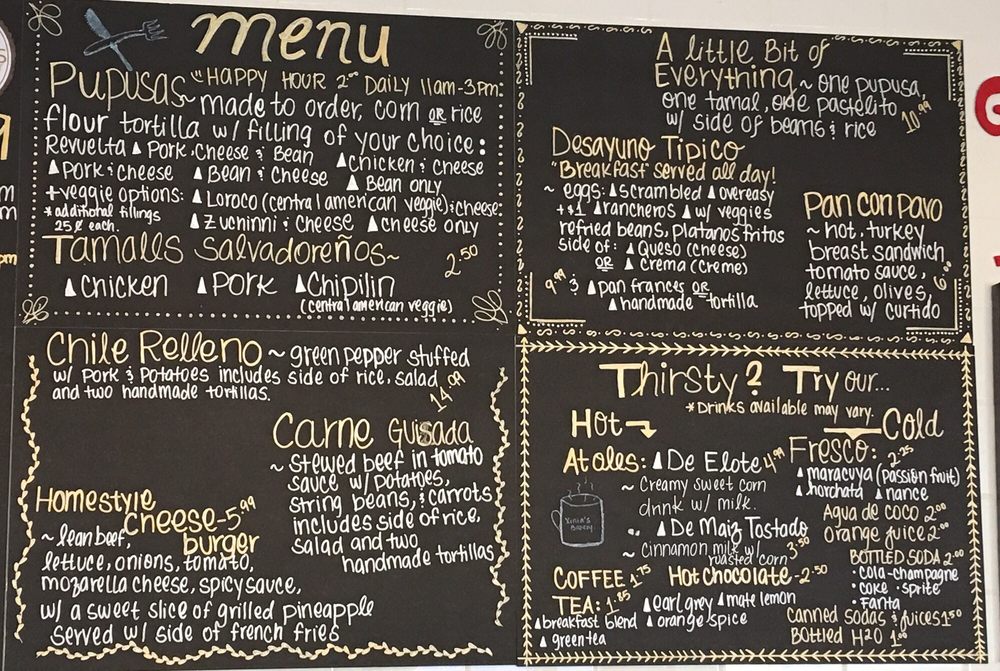 menu
Pupusas "HAPPY HOUR 2⁰⁰ DAILY 11am-3pm"
~made to order, corn or rice
flour tortilla w/ filling of your choice:
Revuelta ▲ Pork, Cheese & Bean ▲ Chicken & Cheese
▲ Pork & Cheese ▲ Bean & Cheese ▲ Bean only
+veggie options: ▲ Loroco (central american veggie) & cheese
*additional fillings 25¢ each. ▲ Zuchinni & Cheese ▲ cheese only
Tamalls Salvadoreños~ 2.50
▲ chicken ▲ Pork ▲ Chipilin
(central american veggie)
Chile Relleno ~ green pepper stuffed
w/ Pork & Potatoes includes side of rice, salad
and two handmade tortillas. 14.99
Carne Guisada
~ stewed beef in tomato
sauce w/ potatoes,
string beans, & carrots
includes side of rice,
salad and two
handmade tortillas
Homestyle
cheese-5.99
burger
~ lean beef,
lettuce, onions, tomato,
mozarella cheese, spicy sauce,
w/ a sweet slice of grilled pineapple
served w/ side of french fries
A little Bit of
Everything ~ one pupusa,
one tamal, one pastelito
w/ side of beans & rice 10.99
Desayuno Tipico
"Breakfast" served all day!
~ eggs: ▲ scrambled ▲ overeasy
+$1 ▲ rancheros ▲ w/ veggies
refried beans, platanos fritos
side of: ▲ Queso (cheese)
OR ▲ crema (creme)
9.99 & ▲ pan frances OR
▲ handmade tortilla
Pan con Pavo
~ hot, turkey
breast sandwich
tomato sauce,
lettuce, olives,
topped w/ curtido
Thirsty? Try our...
*Drinks available may vary.
Hot
Atoles: ▲ De Elote 4.99
~ Creamy sweet corn
drink w/ milk.
▲ De Maiz Tostado
~ Cinnamon milk w/
roasted corn 3.50
XINIA'S
BAKERY
COFFEE 1.75 Hot Chocolate - 2.50
TEA: 1.85 ▲ earl grey ▲ mate lemon
▲ breakfast blend ▲ orange spice
▲ green tea
Cold
Fresco: 2.25
▲ maracuya (passion fruit)
▲ horchata ▲ nance
Agua de coco 2.00
orange juice 2.00
BOTTLED SODA 2.00
• cola-champagne
• coke • sprite
• Fanta
canned sodas & juices 1.50
Bottled H2O 1.00